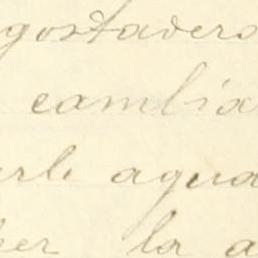 gostadero
cambia
arle agua
ber la a